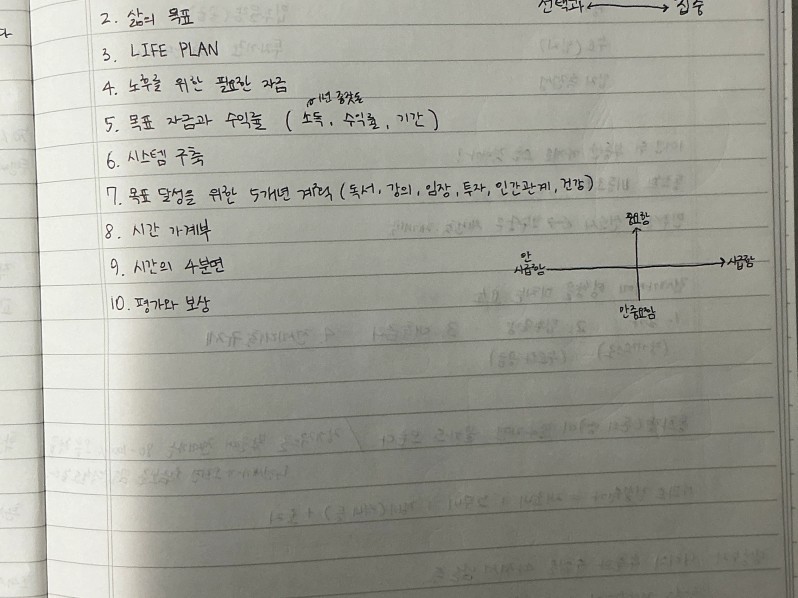 2. 삶의 목표
선택과 ↔ 집중
3. LIFE PLAN
4. 노후를 위한 필요한 자금
5. 목표 자금과 수익률 ( 소득, 수익률, 기간 )
6. 시스템 구축
7. 목표 달성을 위한 5개년 계획 (독서, 강의, 임장, 투자, 인간관계, 건강)
8. 시간 가계부
중요함
9. 시간의 4분면
안 시급함
시급함
10. 평가와 보상
안중요함